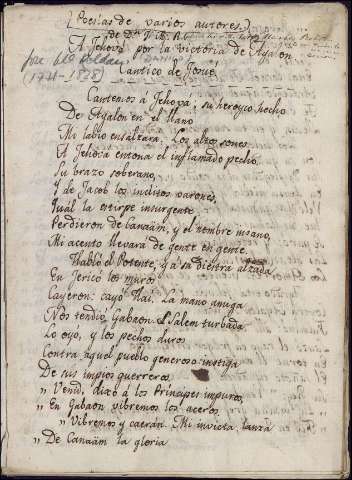 (Poesias de varios autores.)
de Dn. J. B. R.
A Jehová por la victoria de Ayalon
(1741-1828)
Cantico de Josué.
Cantemos á Jehová; su heroyco hecho
De Ayalon en el llano
Mi labio ensalzará: Los altos sones
A Jehova entona el inflamado pecho.
Su brazo soberano
Y de Jacob los inclitos varones,
Cuál la estirpe insurgente
Perdieron de Canaám, y el nombre insano,
Mi acento llevará de gente en gente.
Habló el Potente, y á su diestra alzada
En Jericó los muros
Cayeron: cayó Hai. La mano amiga
Nos tendió Gabaon. Salem turbada
Lo oyó, y los pechos duros
Contra aquel pueblo generoso instiga
De sus impios guerreros.
,, Venid, dixo á los Principes impuros,
,, En Gabaón vibremos los aceros,
,, Vibremos y caerán. Mi invicta lanza
,, De Canaám la gloria